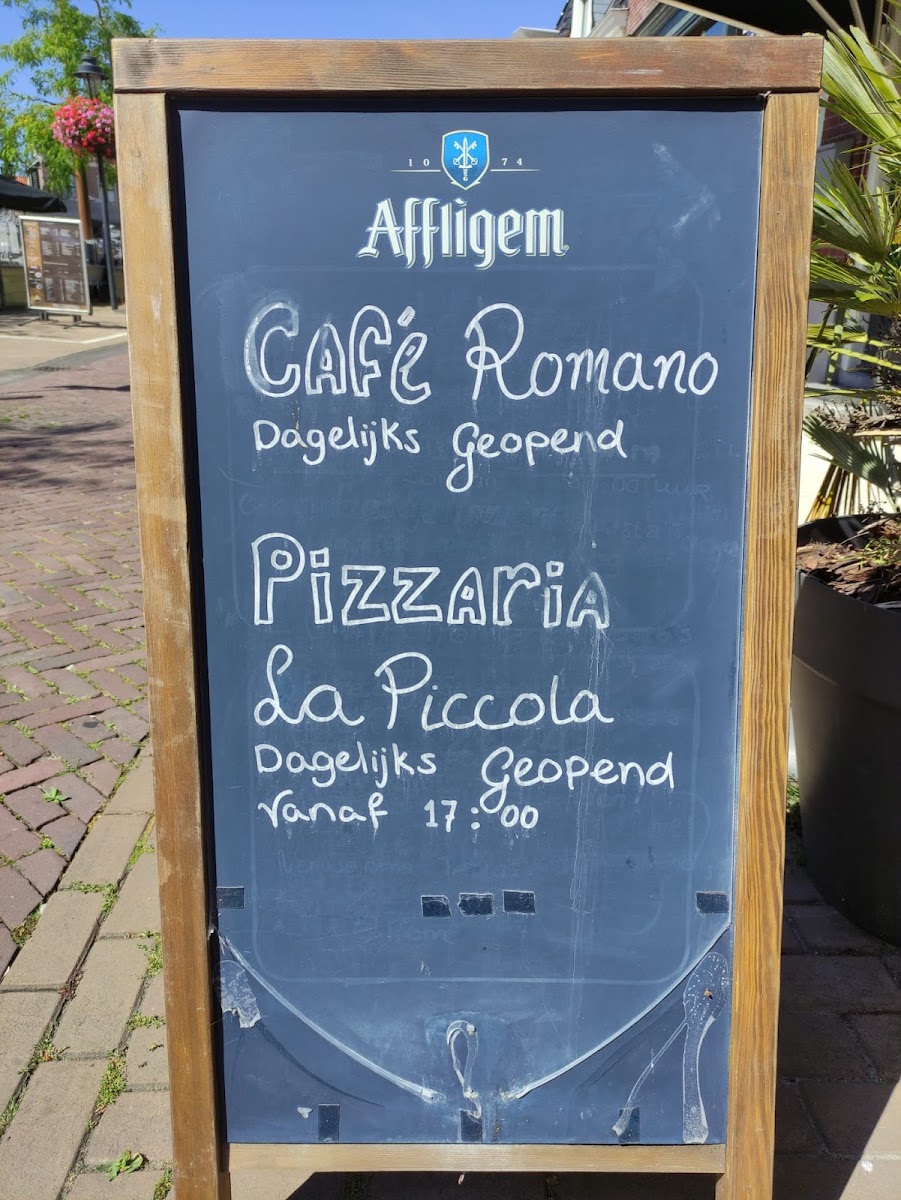 10 74
Affligem
Café Romano
Dagelijks Geopend
Pizzaria
La Piccola
Dagelijks Geopend
Vanaf 17:00